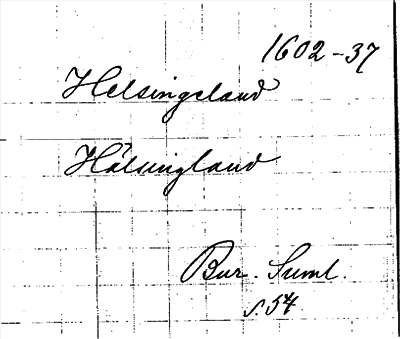 1602-37
Helsingeland
Hälsingland
Bur. Suml.
s. 54